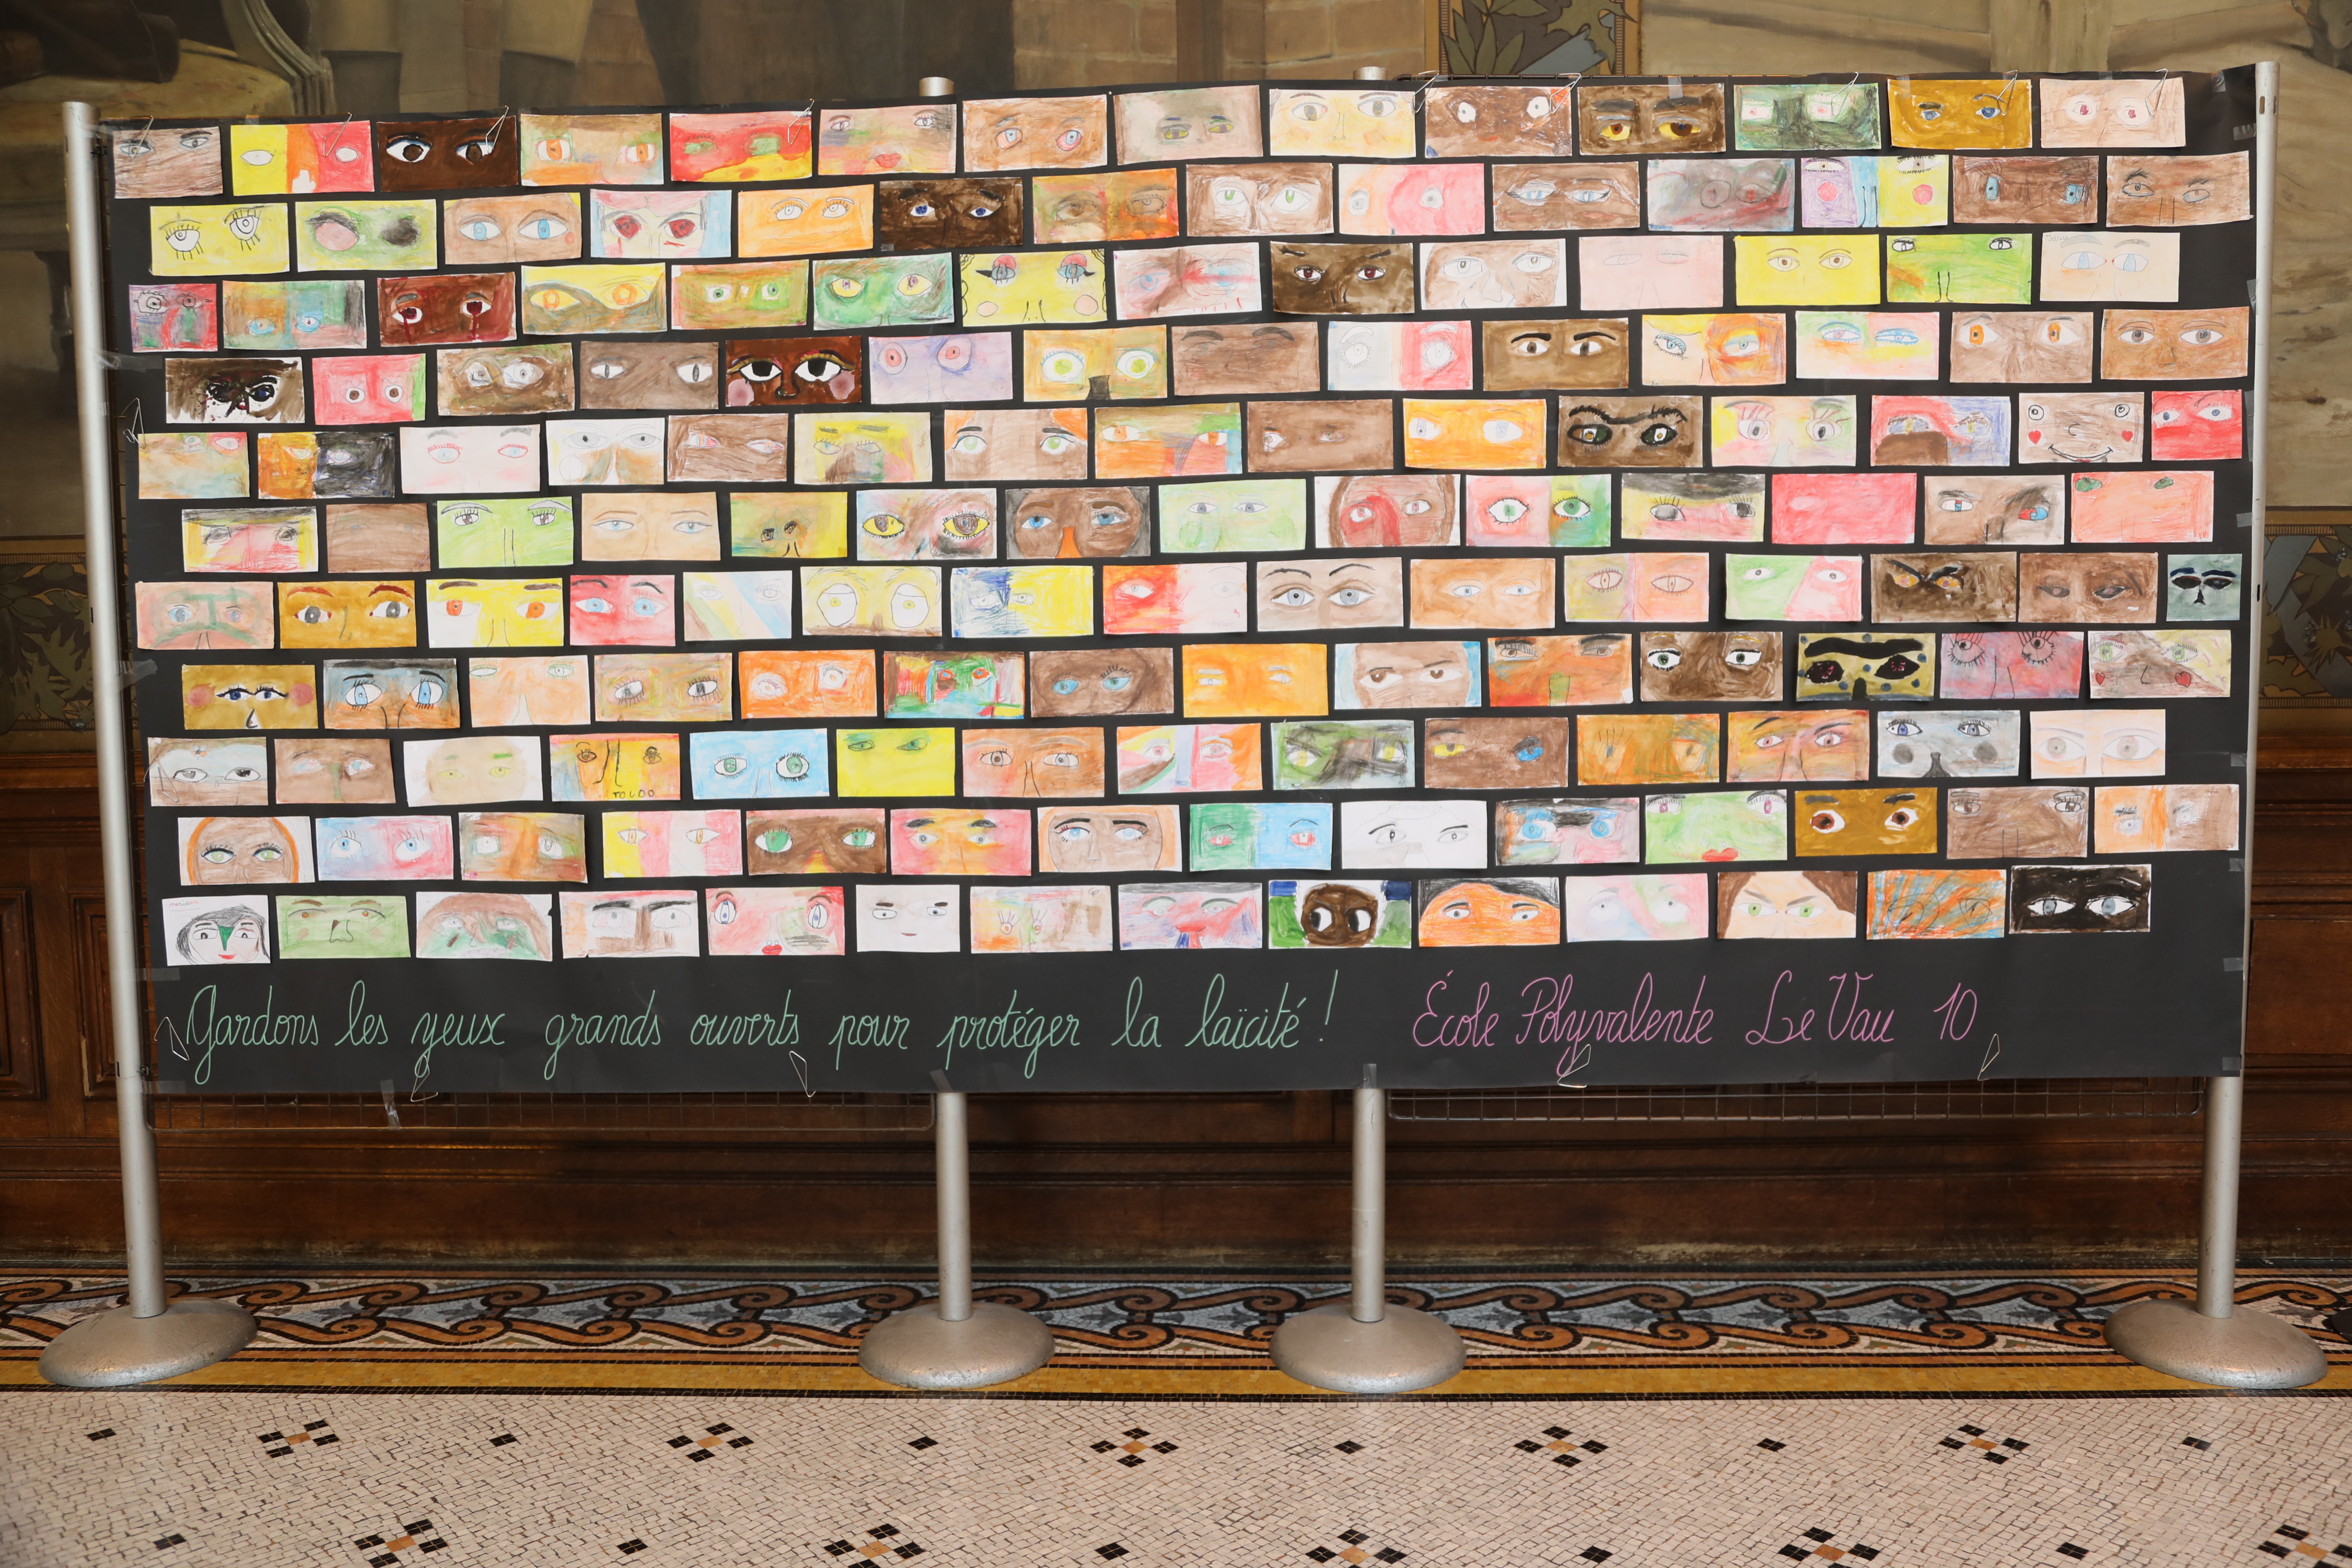 Gardons les yeux grands ouverts pour protéger la laïcité ! École Polyvalente Le Vau 10